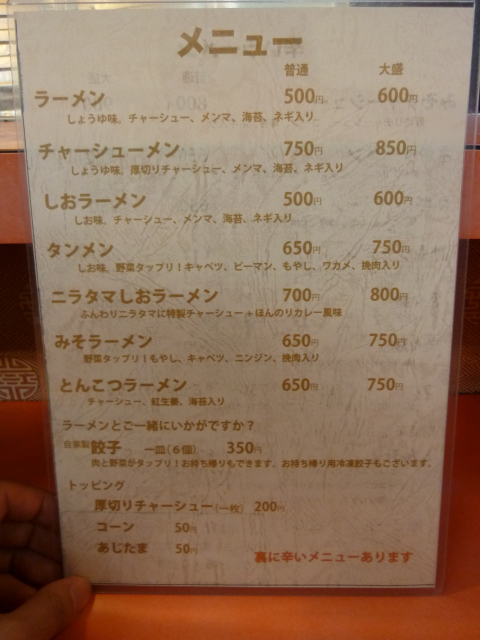 メニュー
普通 大盛
ラーメン 500円 600円
しょうゆ味。チャーシュー、メンマ、海苔、ネギ入り
チャーシューメン 750円 850円
しょうゆ味、厚切りチャーシュー、メンマ、海苔、ネギ入り
しおラーメン 500円 600円
しお味。チャーシュー、メンマ、海苔、ネギ入り
タンメン 650円 750円
しお味、野菜タップリ！キャベツ、ピーマン、もやし、ワカメ、挽肉入り
ニラタマしおラーメン 700円 800円
ふんわりニラタマに特製チャーシュー＋ほんのりカレー風味
みそラーメン 650円 750円
野菜タップリ！もやし、キャベツ、ニンジン、挽肉入り
とんこつラーメン 650円 750円
チャーシュー、紅生姜、海苔入り
ラーメンとご一緒にいかがですか？
自家製 餃子 一皿（６個） 350円
肉と野菜がタップリ！お持ち帰りもできます。お持ち帰り用冷凍餃子もございます。
トッピング
厚切りチャーシュー（一枚） 200円
コーン 50円
あじたま 50円
裏に辛いメニューあります